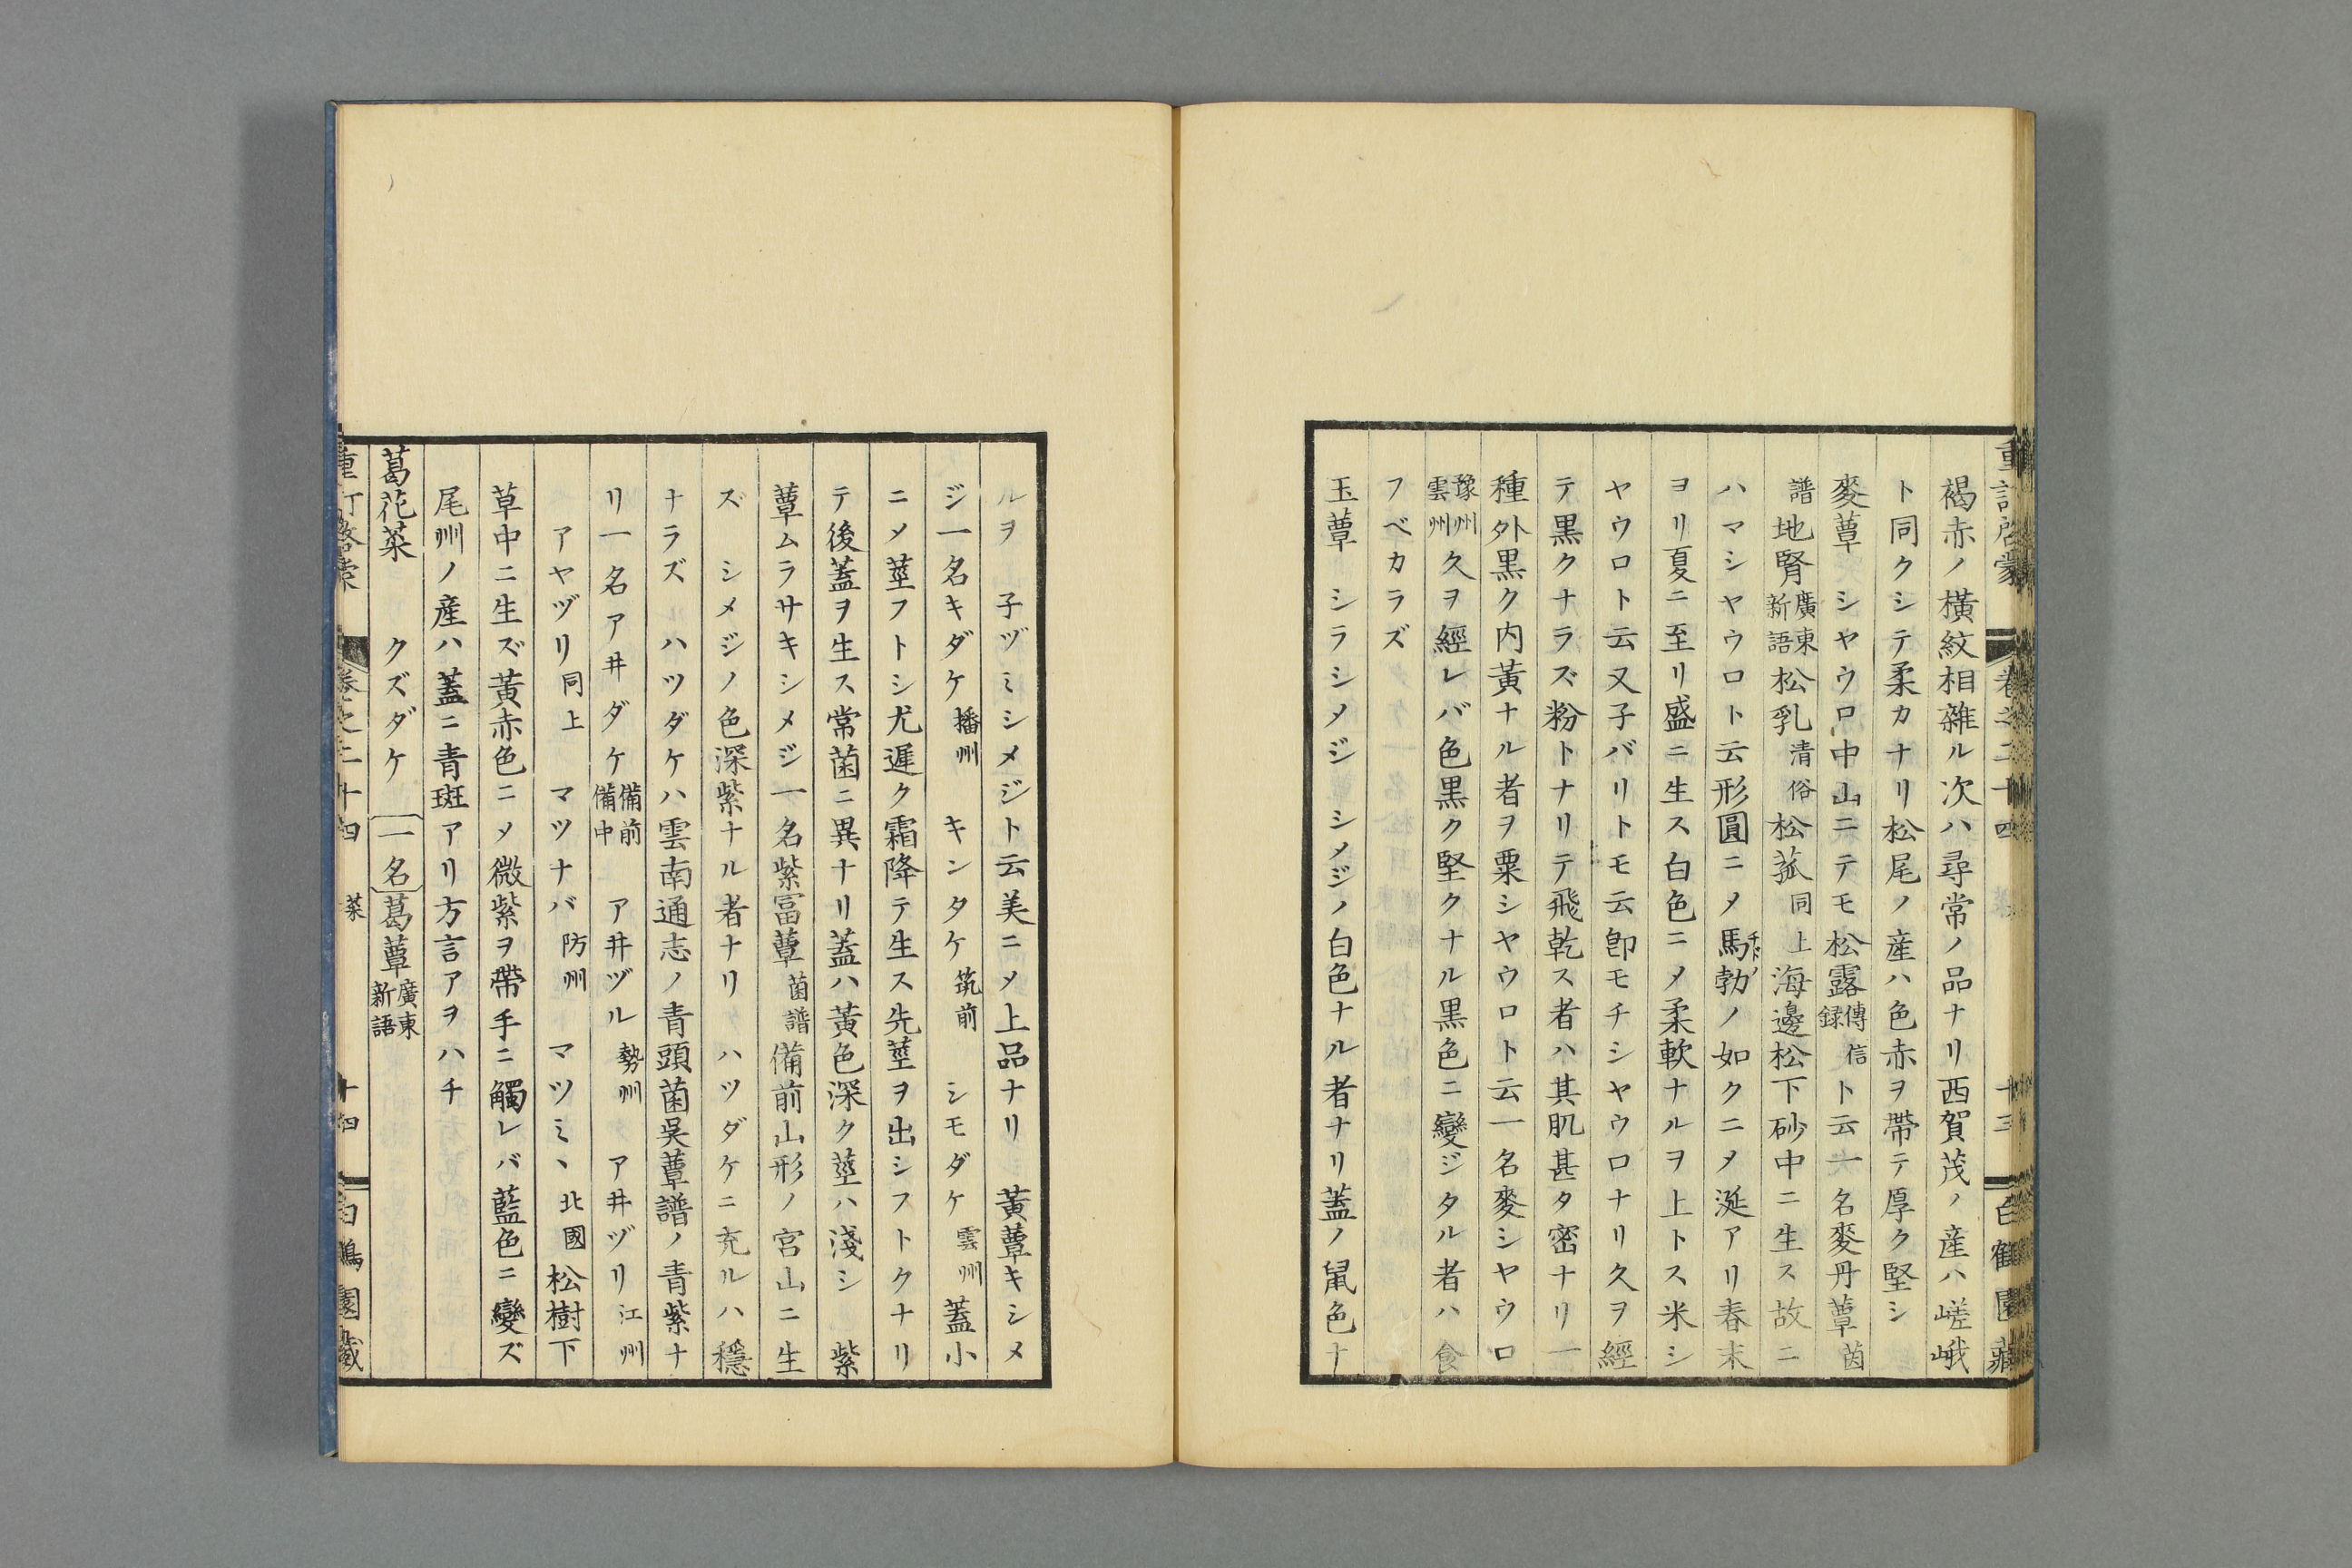 重訂啓蒙 卷之二十四 十三 白鶴園藏
褐赤ノ橫紋相雜ル次ハ尋常ノ品ナリ西賀茂ノ産ハ嵯峨
ト同クシテ柔カナリ松尾ノ産ハ色赤ヲ帶テ厚ク堅シ
麥蕈 シヤウロ中山ニテモ松露傳信録ト云一名麥丹蕈菌
譜地腎廣東新語松乳清俗松菰同上海邊松下砂中ニ生ス故ニ
ハマシヤウロト云形圓ニメ馬勃ノ如クニメ涎アリ春末
ヨリ夏ニ至リ盛ニ生ス白色ニメ柔軟ナルヲ上トス米シ
ヤウロト云又子バリトモ云卽モチシヤウロナリ久ヲ經
テ黒クナラズ粉トナリテ飛乾ス者ハ其肌甚タ密ナリ一
種外黒ク内黃ナル者ヲ粟シヤウロト云一名麥シヤウロ
豫州雲州久ヲ經レバ色黒ク堅クナル黒色ニ變ジタル者ハ食
フベカラズ
玉蕈 シラシメジ シメジノ白色ナル者ナリ蓋ノ鼠色ナ
ルヲ子ヅミシメジト云美ニメ上品ナリ 黃蕈キシメ
ジ一名キダケ播州 キンタケ筑前 シモダケ雲州蓋小
ニメ莖フトシ尤遲ク霜降テ生ス先莖ヲ出シフトクナリ
テ後蓋ヲ生ス常菌ニ異ナリ蓋ハ黃色深ク莖ハ淺シ 紫
蕈ムラサキシメジ一名紫富蕈菌譜備前山形ノ宮山ニ生
ズ シメジノ色深紫ナル者ナリ ハツダケニ充ルハ穩
ナラズ ハツダケハ雲南通志ノ青頭菌吳蕈譜ノ青紫ナ
リ一名ア井ダケ備前備中 ア井ヅル勢州 ア井ヅリ江州
アヤヅリ同上 マツナバ防州 マツミヽ北國松樹下
草中ニ生ズ黃赤色ニメ微紫ヲ帶手ニ觸レバ藍色ニ變ズ
尾州ノ産ハ蓋ニ青斑アリ方言アヲハチ
葛花菜 クズダケ 一名葛蕈廣東新語
重訂啓蒙 卷之二十四 菜 十四 白鶴園藏